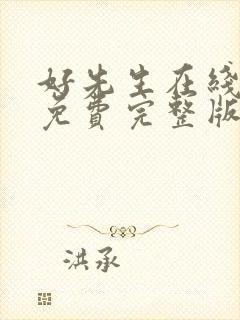 好先生在线
免费完整版
洪承